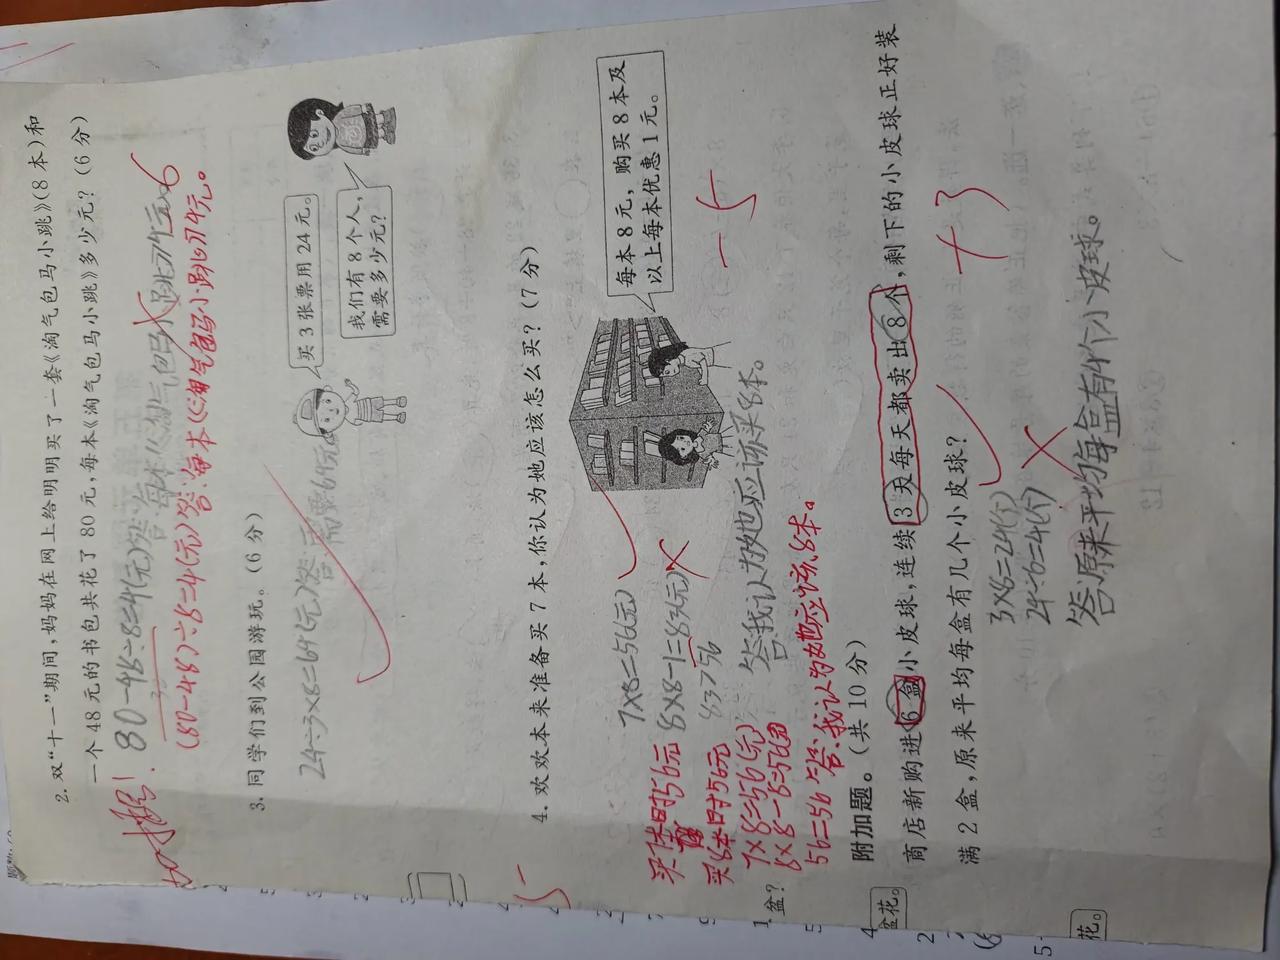 2. 双“十一”期间,妈妈在网上给明明买了一套《淘气包马小跳》(8 本)和
一个 48 元的书包共花了 80 元,每本《淘气包马小跳》多少元? (6 分)
80-48÷8=4(元)
(80-48)÷8=4(元)答:每本《淘气包马小跳》4元。
3. 同学们到公园游玩。(6 分)
买 3 张票用 24 元。
我们有 8 个人,
需要多少元?
24÷3×8=64(元)答:需要64元
4. 欢欢本来准备买 7 本,你认为她应该怎么买? (7 分)
每本 8 元, 购买 8 本及
以上每本优惠 1 元。
-5
7×8=56(元)
8×8-1=83(元)
83>56
答:我认为她应该买8本。
买7本时56元
买8本时56元
7×8=56(元)
8×8-8=56(元)
56=56 答:我认为她应该8本。
附加题。(共 10 分)
商店新购进 6 盒小皮球,连续 3 天每天都卖出 8 个,剩下的小皮球正好装
满 2 盒,原来平均每盒有几个小皮球?
+3
3×8=24(个)
24÷6=4(个)
答:原来平均每盒有4个小皮球。
盆?
盆花。
花。